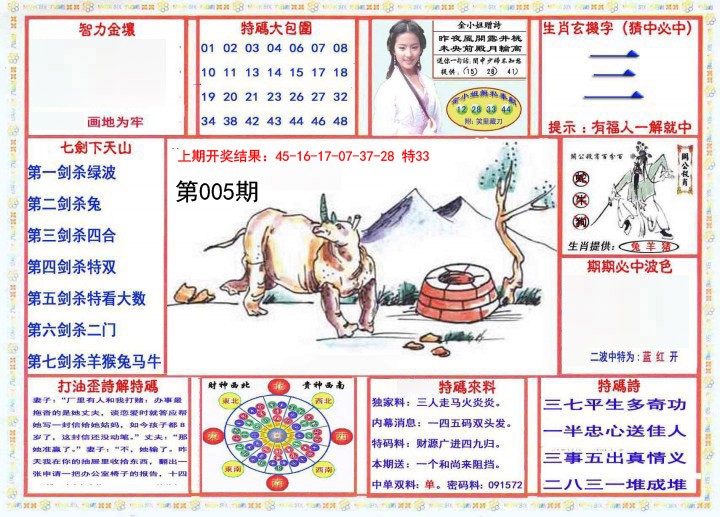 智力金壤
画地为牢
特碼大包圍
01 02 04 05 06 07 08
10 11 13 14 15 16 18
19 20 21 23 26 27 32
34 38 42 43 44 46 48
金小姐赠詩
昨夜風開露井桃
未央前殿月輪高
送你一句話, 閨中少婦不知愁
提供:(15) 28 41)
金小姐無私奉獻
12 28 33 44
附: 笑里藏刀
生肖玄機字（猜中必中）
三
提示：有福人一解就中
七劍下天山
第一剑杀绿波
第二剑杀兔
第三剑杀四合
第四剑杀特双
第五剑杀特看大数
第六剑杀二门
第七剑杀羊猴兔马牛
上期开奖结果：45-16-17-07-37-28 特33
第005期
關公殺肖百分百
關公殺肖
蛇
羊
狗
生肖提供：兔羊豬
期期必中波色
二波中特为：蓝 红 开
打油歪詩解特碼
妻子："厂里有人和我打赌：办事最
拖沓的是她丈夫，谈恋爱时就答应帮
她写一封信给她姑妈，如今孩子都8
岁了，这封信还没动笔。"丈夫："那
她准赢了。"妻子："不，她输了。昨
天我在你的抽屉里收拾东西，翻出一
张申请一把办公室椅子的报告，十四
財神西北
貴神西南
北
東北
西北
東
西
東南
西南
南
特碼來料
独家料：三人走马火炎炎。
内幕消息：一四五码双头发。
特码料：财源广进四九归。
本期送：一个和尚来阻挡。
中单双料：单。密码料：091572
特碼詩
三七平生多奇功
一半忠心送佳人
三事五出真情义
二八三一堆成堆